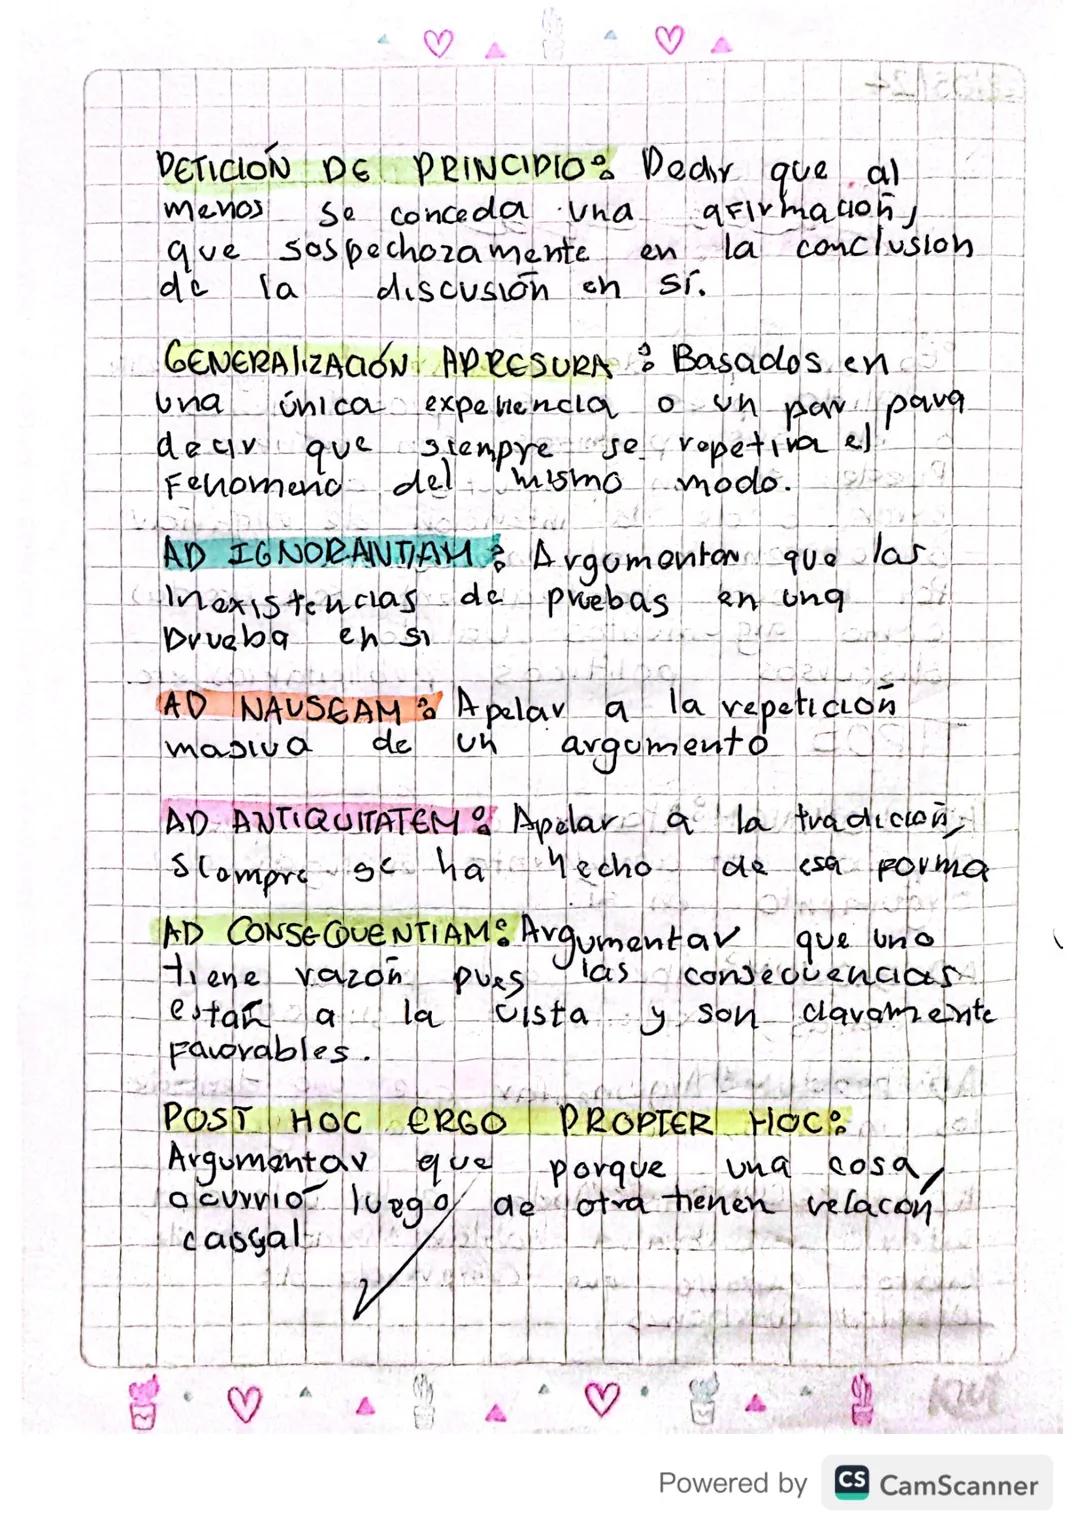 PETICIÓN DE PRINCIPIO: Pedir que al
menos se conceda una afirmación,
que sospechozamente en la conclusion
de la discusión en sí.
GENERALIZACIÓN APRESURA: Basados en
una única experiencia o un par para
decir que siempre se repetira el
Fenomeno del mismo modo.
AD IGNORANTIAM: Argumentar que las
Inexistencias de pruebas en una
Prueba en si
AD NAUSEAM: Apelar a la repetición
masiva de un argumento
AD ANTIQUITATEM: Apelar a la tradición,
siempre se ha hecho de esa forma
AD CONSEQUENTIAM: Argumentar que uno
tiene razón pues las consecuencias
están a la vista y son claramente
favorables.
POST HOC ERGO PROPTER HOC:
Argumentar que porque una cosa,
ocurrió luego de otra tienen relacón
casgal
Powered by CS CamScanner